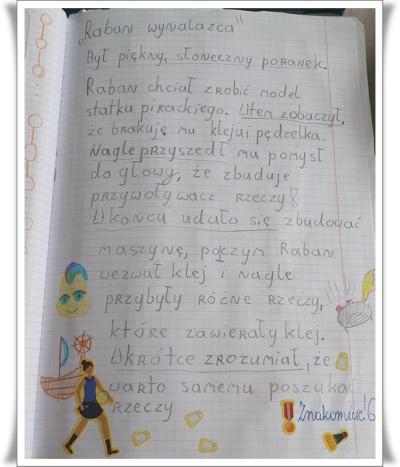 „Raban wynalazca”
Był piękny, słoneczny poranek.
Raban chciał zrobić model
statku pirackiego. Wtem zobaczył,
że brakuję mu kleju i pędzelka.
Nagle przyszedł mu pomysł
do głowy, że zbuduje
przywoływacz rzeczy!
W końcu udało się zbudować
maszynę, poczym Raban
wezwał klej i nagle
przybyły różne rzeczy,
które zawierały klej.
Wkrótce zrozumiał, że
warto samemu poszukać
rzeczy
Znakomicie! 6